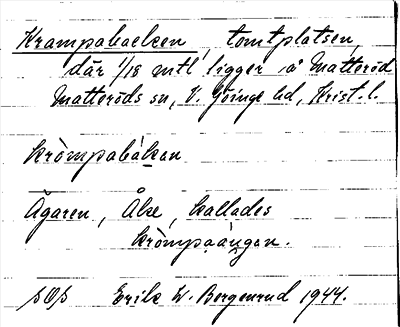 Krampabacken, tomtplatsen,
där 1/18 mtl ligger i Matteröd
Matteröds sn, V. Göinge hd, Krist. l.
kròmpabákan
Ågaren, Åke, kallades
kròmpaángan.
SOS Erik W. Bergenrud 1944.